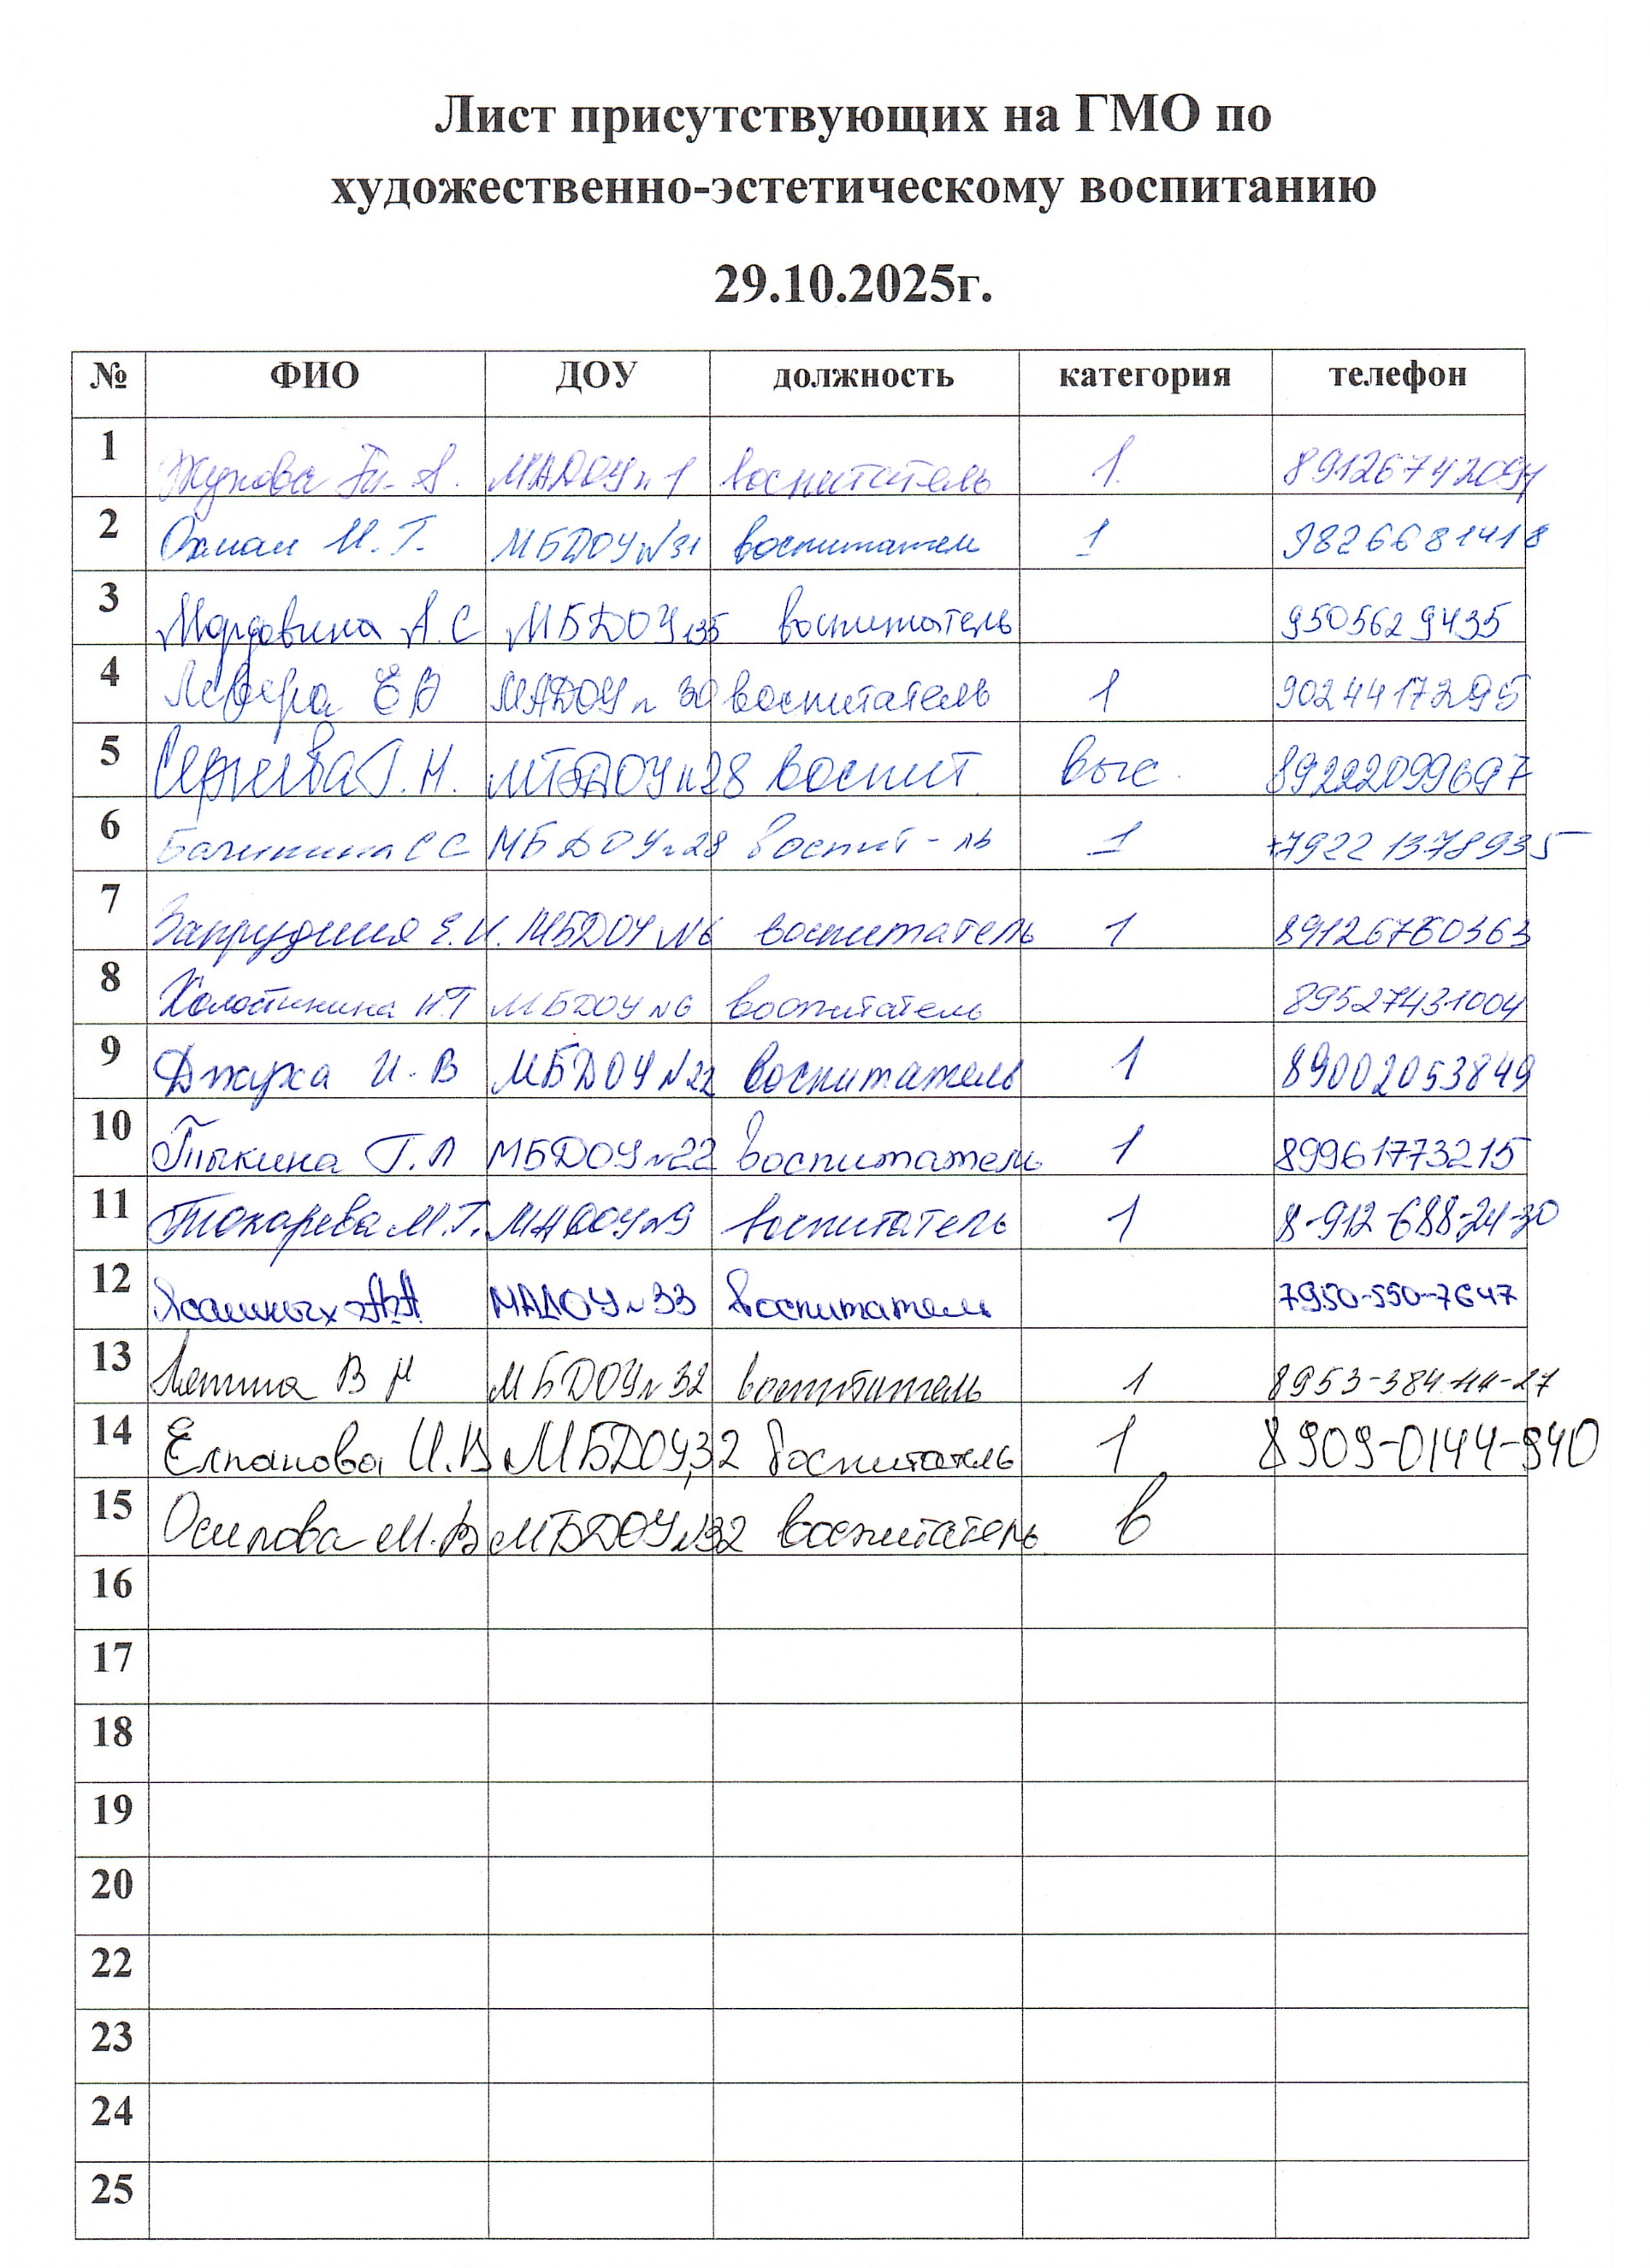 Лист присутствующих на ГМО по
художественно-эстетическому воспитанию
29.10.2025г.
№ ФИО ДОУ должность категория телефон
1 Жукова А. МАДОУ н 1 воспитатель 1.
2 М. Г. МБДОУ №31 воспитатель 1 9826681418
3 Мордовина А.С МБДОУ 35 воспитатель 9505629435
4 ЕВ МАДОУ н 30 воспитатель 1 9024417295
5 Сергеева Г. Н. МБДОУ н28 воспит. выс. 89222099697
6 СС МБДОУ н28 воспит-ль 1 +79221378935
7 Е.И. МБДОУ №6 воспитатель 1 89126760363
8 МБДОУ №6 воспитатель 89527431004
9 И. В МБДОУ №22 воспитатель 1 89002053849
10 Пыкина Г. Л МБДОУ н22 воспитатель 1 89961773215
11 Токарева М.Г. МАДОУ н9 воспитатель 1 8-912-688-24-30
12 МАДОУ н 33 воспитатель 7950-550-7647
13 В МБДОУ н 32 воспитатель 1 8953-384-44-27
14 Елпанова И.В МБДОУ 32 воспитатель 1 8909-0144-940
15 Осипова М.В МБДОУ №32 воспитатель в
16
17
18
19
20
22
23
24
25